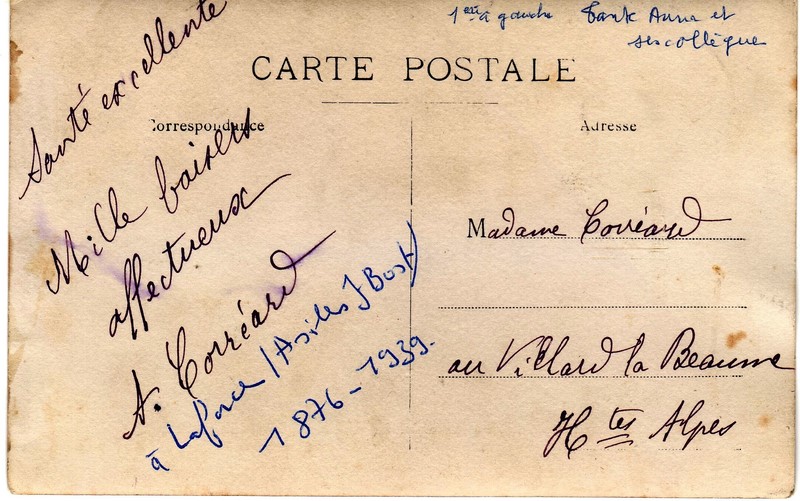 1ère à gauche Tante Anna et
ses collègue
CARTE POSTALE
Correspondance
Adresse
Santé excellente
Mille baisers
affectueux
A. Corréard
à Laforce (Asiles J Bost)
1876-1939.
Madame Corréard
au Villard la Beaume
Htes Alpes